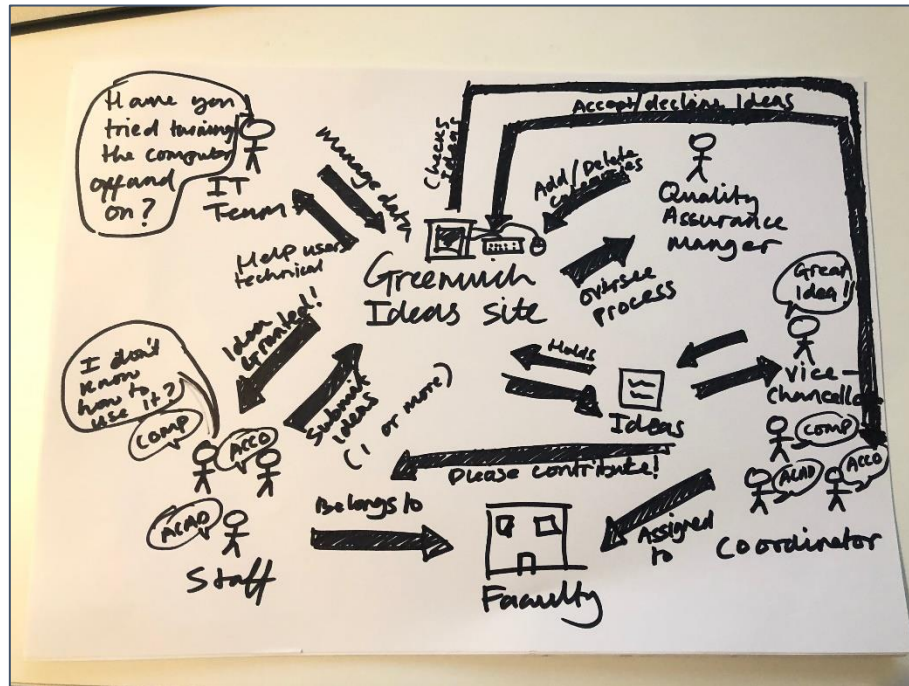 Have you
tried turning
the computer
off and
on?
IT
Team
Manage data
Help users
technical
Checks
Ideas
Accept/decline Ideas
Add/Delete
categories
Quality
Assurance
Manger
Greenwich
Ideas site
oversee
process
Great
Idea!
Vice-
Chancellor
Idea
Granted!
Submit
Ideas
(1 or more)
Holds
Ideas
I don't
know
how to
use it?
COMP
ACCO
ACAD
Staff
Please contribute!
Belongs to
Faculty
Assigned
to
COMP
ACAD
ACCO
Coordinator